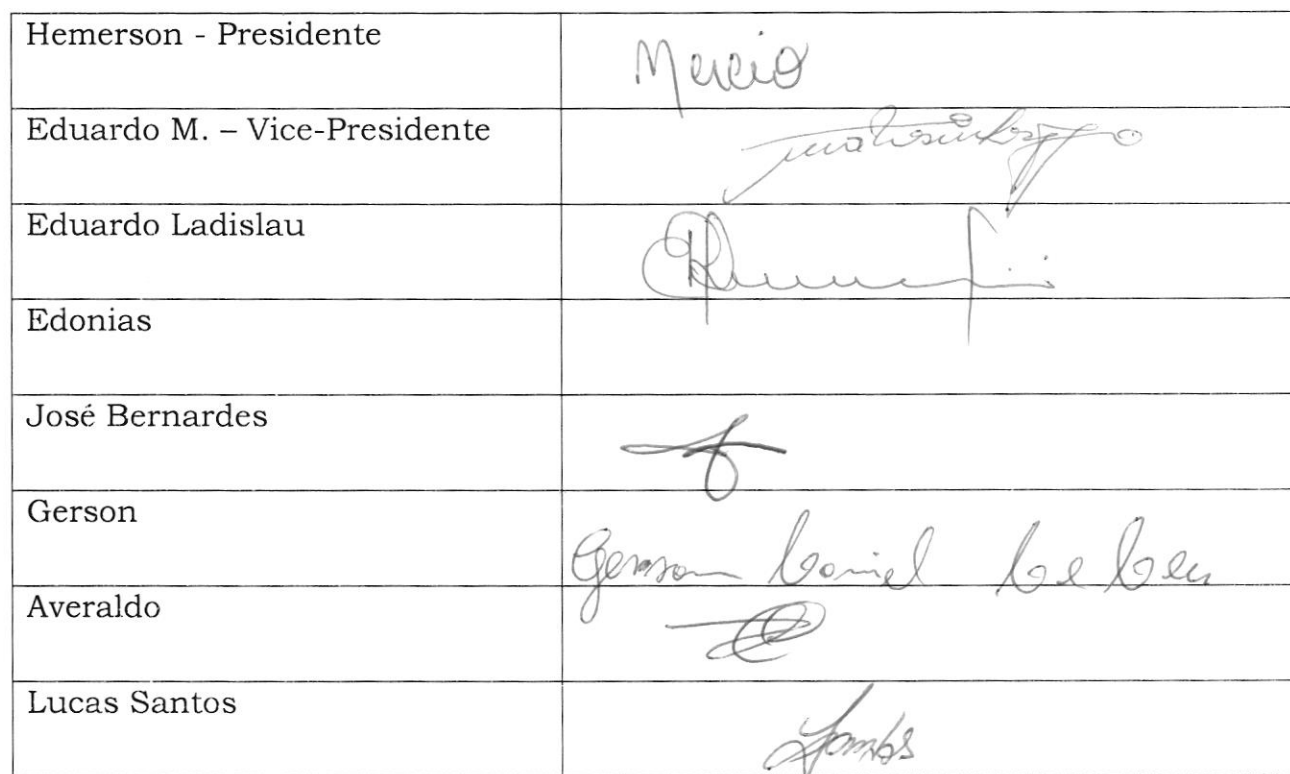 Hemerson - Presidente
Mercio
Eduardo M. – Vice-Presidente
Eduardo Ladislau
Edonias
José Bernardes
Gerson
Gerson Daniel
Averaldo
Lucas Santos
Santos